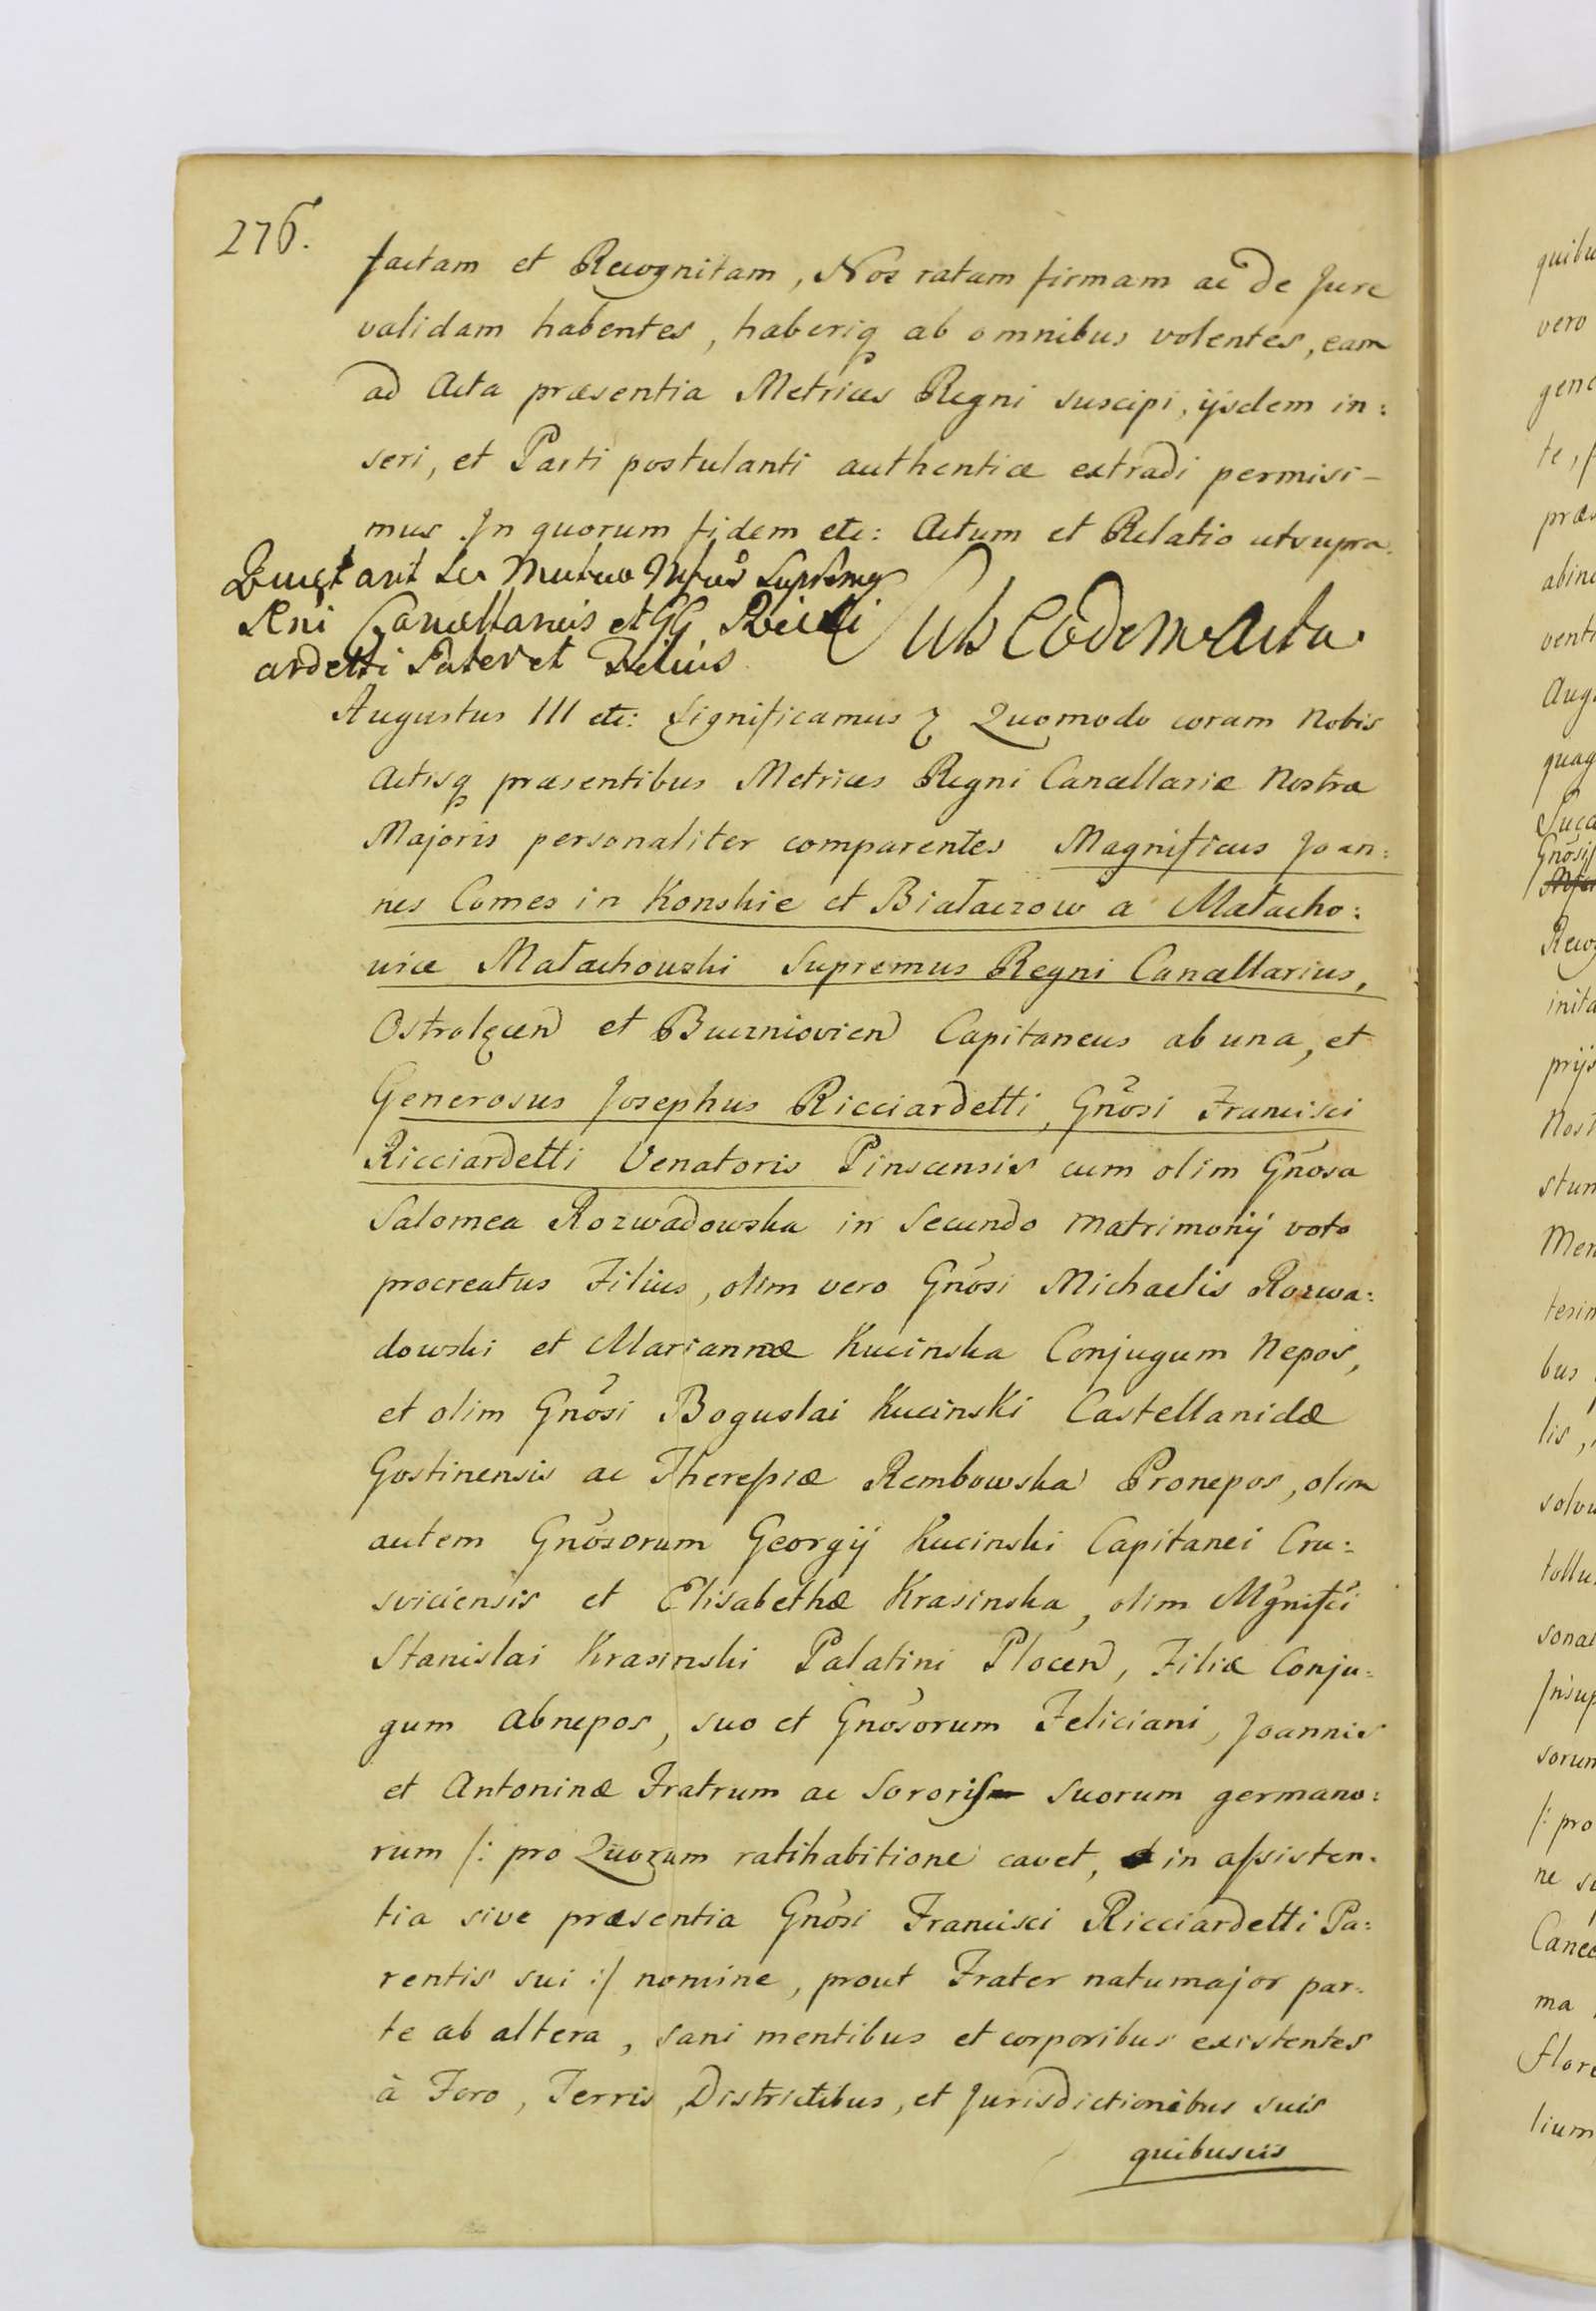 276.
factam et Recognitam, Nos ratam firmam ac de Jure
validam habentes, haberiq ab omnibus volentes, eam
ad Acta præsentia Metrices Regni suscipi, ijsdem in:
seri, et Parti postulanti authentice extradi permisi-
mus. In quorum fidem etc: Actum et Relatio ut supra.
Quietant se mutuo Mfcus Supremus
Rni Cancellarius et GG Ricci
ardetti Pater et Filius
Sub Eodem Acta
Augustus III etc: Significamus Quomodo coram Nobis
Actisq præsentibus Metrices Regni Cancellariæ Nostræ
Majoris personaliter comparentes Magnificus Joan:
nes Comes in Konskie et Białaczow a Małacho:
wice Małachowski Supremus Regni Cancellarius,
Ostrolęcen et Buczniovien Capitaneus ab una, et
Generosus Josephus Ricciardetti, Gnosi Francisci
Ricciardetti Venatoris Pinscensis cum olim Gnosa
Salomea Rozwadowska in Secundo matrimonij voto
procreatus Filius, olim vero Gnosi Michaelis Rozwa:
dowski et Mariannæ Kucinska Conjugum Nepos,
et olim Gnosi Boguslai Kucinski Castellanidæ
Gostinensis ac Theressiæ Rembowska Pronepos, olim
autem Gnosorum Georgij Kucinski Capitanei Cru:
sviciensis et Elisabethæ Krasinska, olim Mgnifci
Stanislai Krasinski Palatini Plocen, Filiæ Conju:
gum Abnepos, suo et Gnosorum Feliciani, Joannis
et Antoninæ Fratrum ac Sororis suorum germano:
rum /: pro Quorum ratihabitione cavet, in assisten:
tia sive præsentia Gnosi Francisci Ricciardetti Pa:
rentis sui :/ nomine, prout Frater natu major par:
te ab altera, sani mentibus et corporibus existentes
à Foro, Terris, Districtibus, et Jurisdictionibus suis
quibusvis